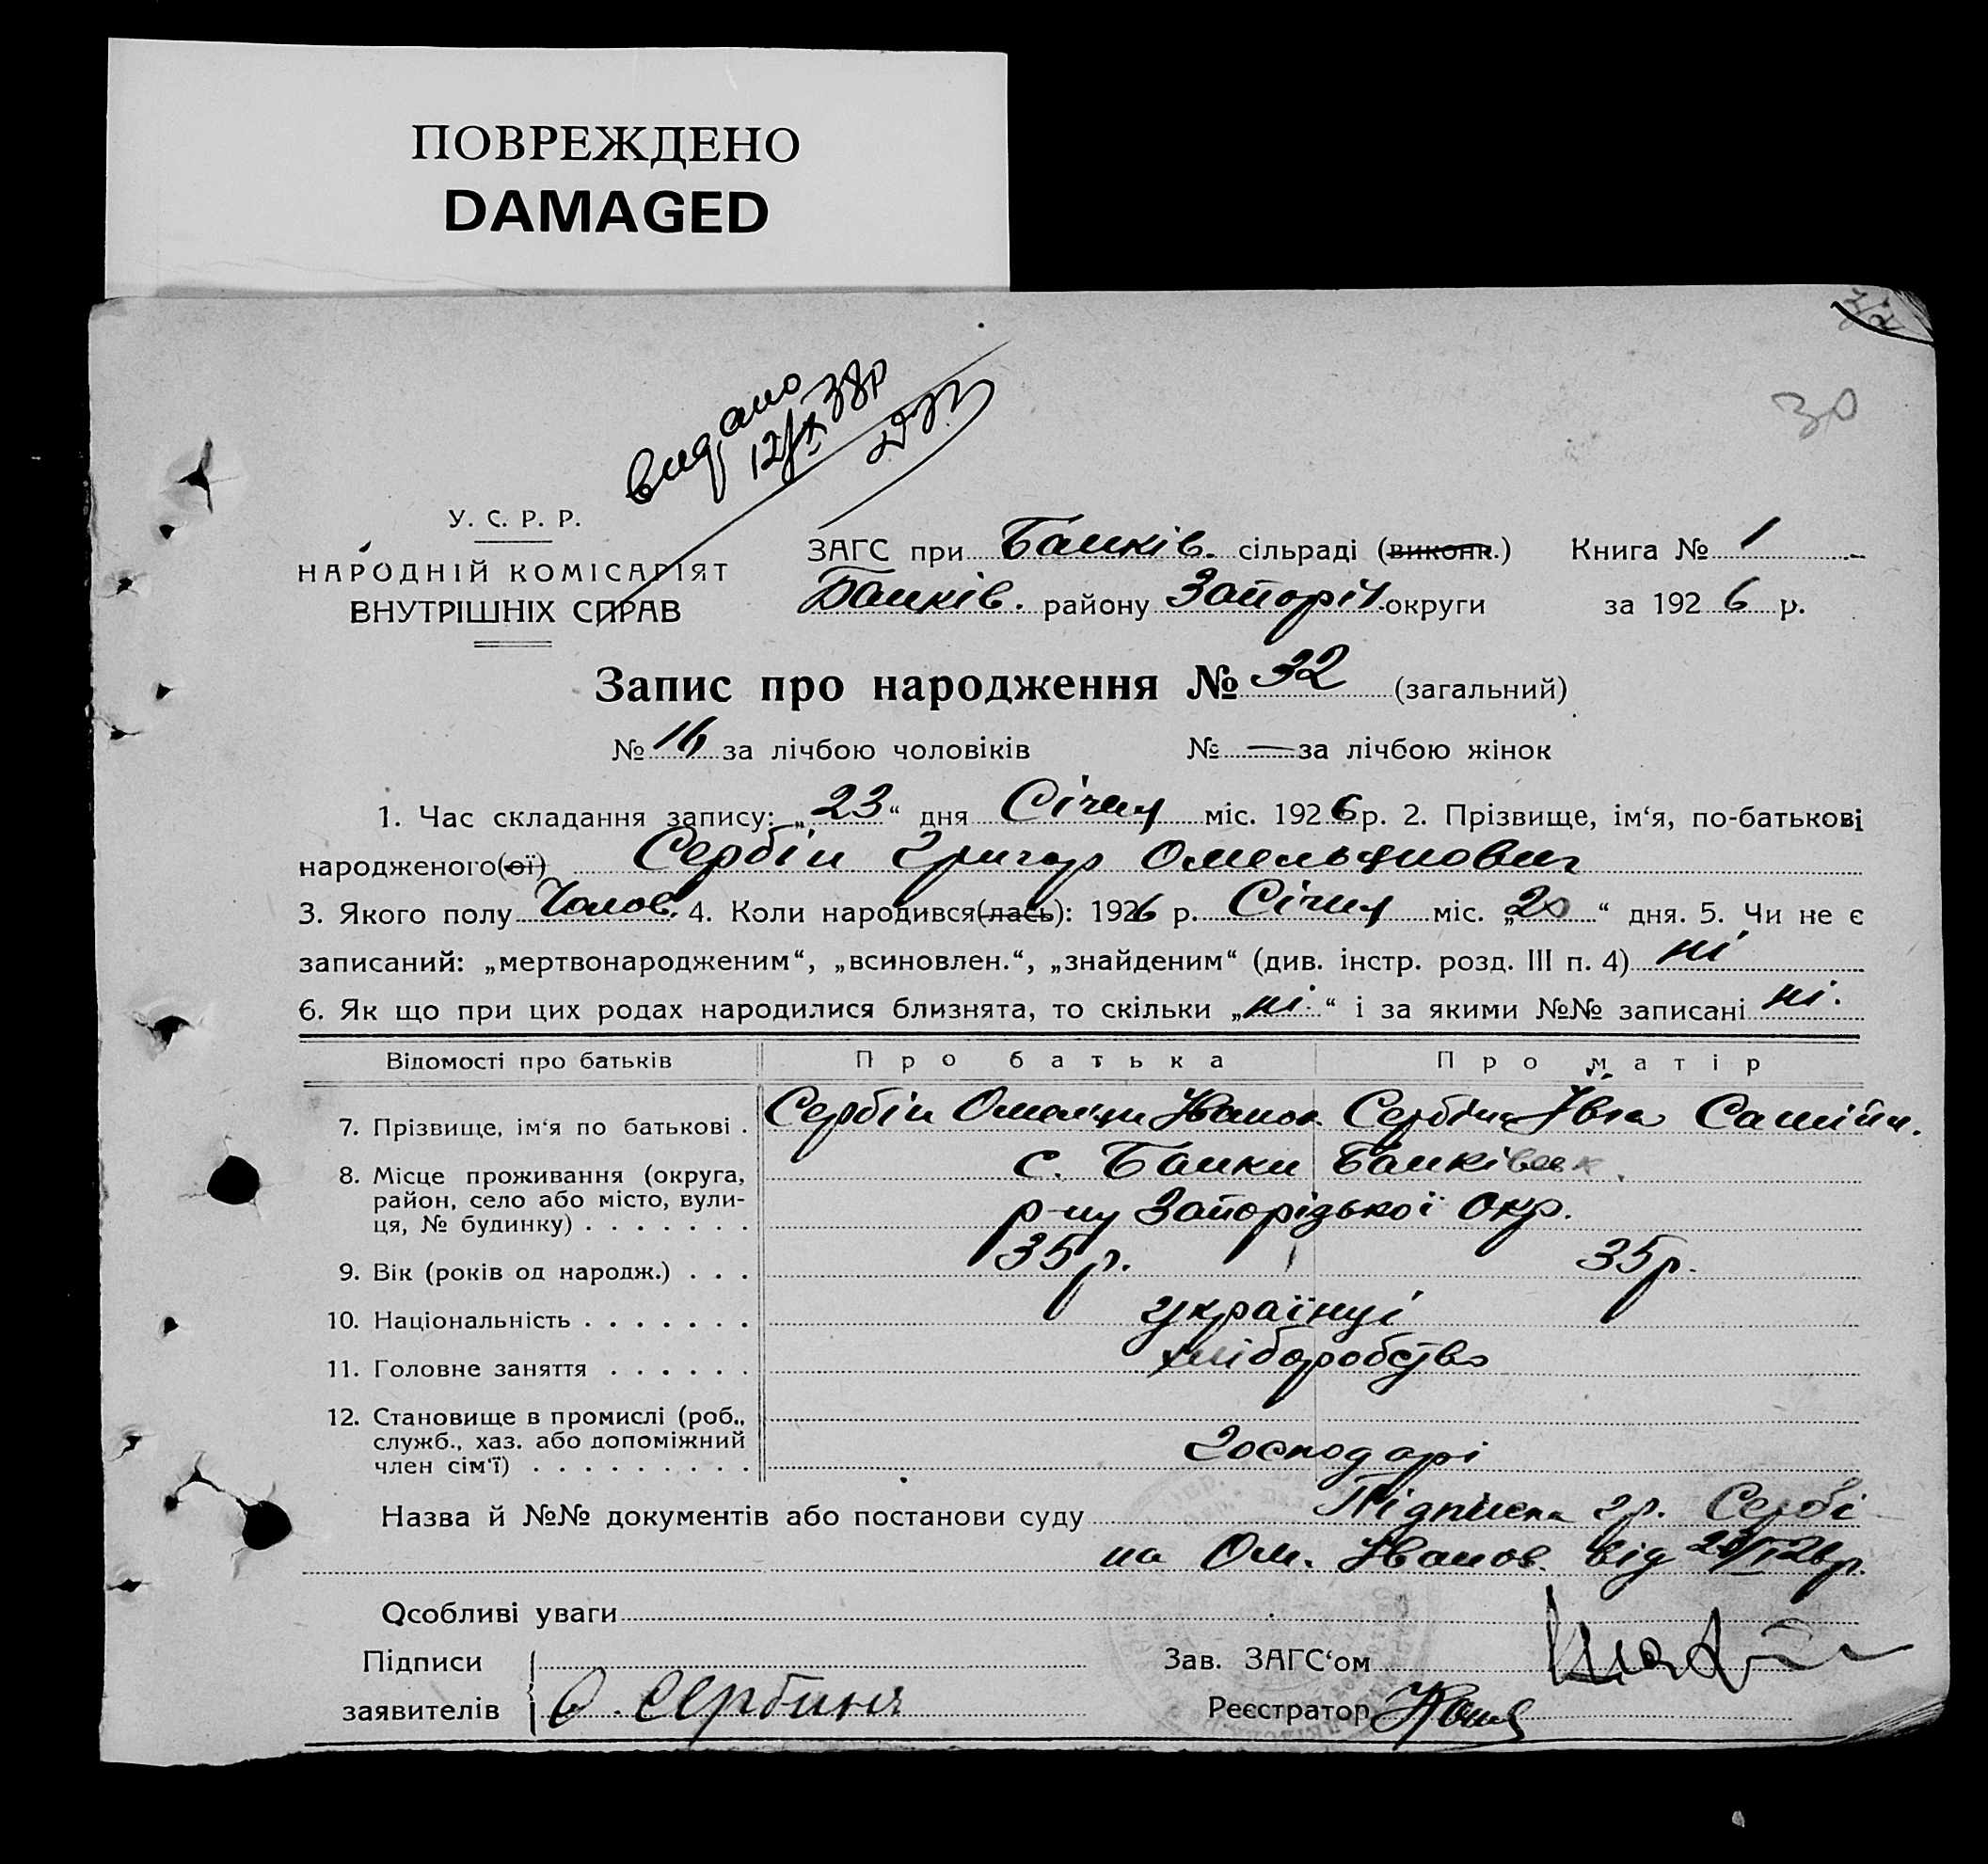 ПОВРЕЖДЕНО
DAMAGED
30
видано
12/X 38р
У. С. Р. Р.
НАРОДНІЙ КОМІСАРІЯТ
ВНУТРІШНІХ СПРАВ
ЗАГС при Балків. сільраді (виконк.) Книга № 1
Балків. району Запоріз. округи за 1926 р.
Запис про народження № 32 (загальний)
№ 16 за лічбою чоловіків № — за лічбою жінок
1. Час складання запису: „23“ дня Січня міс. 1926 р. 2. Прізвище, ім‘я, по-батькові
народженого(ої) Сербін Григор Омельянович
3. Якого полу Чолов. 4. Коли народився(лась): 1926 р. Січня міс. „20“ дня. 5. Чи не є
записаний: „мертвонародженим“, „всиновлен.“, „знайденим“ (див. інстр. розд. III п. 4) ні
6. Як що при цих родах народилися близнята, то скільки „ні“ і за якими №№ записані ні.
Відомості про батьків Про батька Про матір
7. Прізвище, ім‘я по батькові . Сербін Омелян Іванов. Сербіна Івга Самійл.
8. Місце проживання (округа, с. Балки Балківськ.
район, село або місто, вули-
ця, № будинку) . . . . . . . р-ну Запорізької Окр.
9. Вік (років од народж.) . . . 35р. 35р.
10. Національність . . . . . . . українці
11. Головне заняття . . . . . . хліборобство
12. Становище в промислі (роб.,
служб., хаз. або допоміжний
член сім‘ї) . . . . . . . . . Господарі
Назва й №№ документів або постанови суду Підписка гр. Сербі
на Ом. Іванов. від 23/I 26р.
Особливі уваги
Підписи
Зав. ЗАГС‘ом
заявителів О. Сербиня Реєстратор